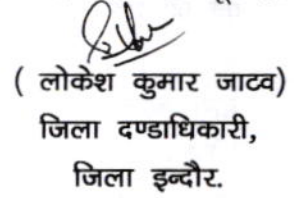 ( लोकेश कुमार जाटव)
जिला दण्डाधिकारी,
जिला इन्दौर.